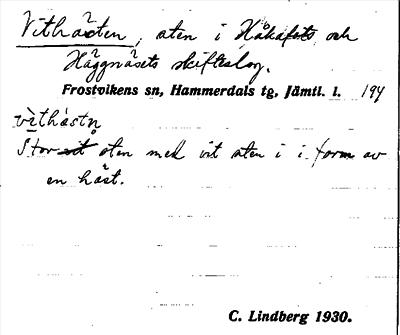 Vithästen, sten i Håkafots och
Häggnäsets skifteslag.
Frostvikens sn, Hammerdals tg, Jämtl. l. 194
vìthástn̥
Stor sten med vit sten i i form av
en häst.
C. Lindberg 1930.